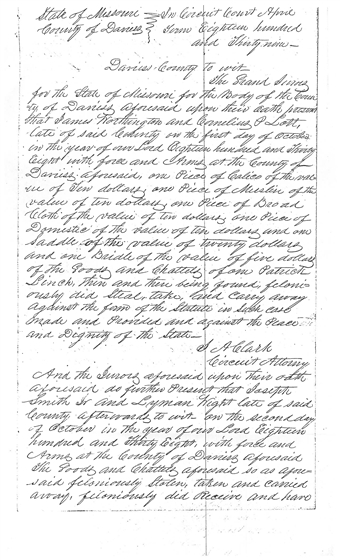 State of Missouri } In Circuit Court April
County of Daviess } Term Eighteen hundred
and Thirty nine
Daviess County to wit
The Grand Jurors
for the State of Missouri for the Body of the Coun
ty of Daviess aforesaid upon their oath present
that James Worthington and Cornelius P Lott,
late of said County in the first day of October
in the year of our Lord Eighteen hundred and thirty
Eight with force and Arms, at the County of
Daviess aforesaid, one Piece of Calico of the val
ue of Ten dollars, one Piece of Muslin of the
value of ten dollars, one Piece of Broad
Cloth of the value of ten dollars, one Piece of
Domestic of the value of ten dollars, and one
Saddle of the value of twenty dollars
and one Bridle of the value of five dollars
of the Goods and Chattels of one Patrick
Linch, then and there being found, feloni-
ously did Steal, take, and Carry away
against the form of the Statute in Such case
made and Provided and against the Peace
and Dignity of the State—
J A Clark
Circuit Attorney
And the Jurors aforesaid upon their oath
aforesaid do further Present that Joseph
Smith Jr and Lyman Wight late of said
County afterwards to wit on the second day
of October in the year of our Lord Eighteen
hundred and thirty Eight, with force and
Arms at the County of Daviess aforesaid
The Goods and Chattels aforesaid so as afore-
said feloniously Stolen, taken and carried
away, feloniously did Receive and have